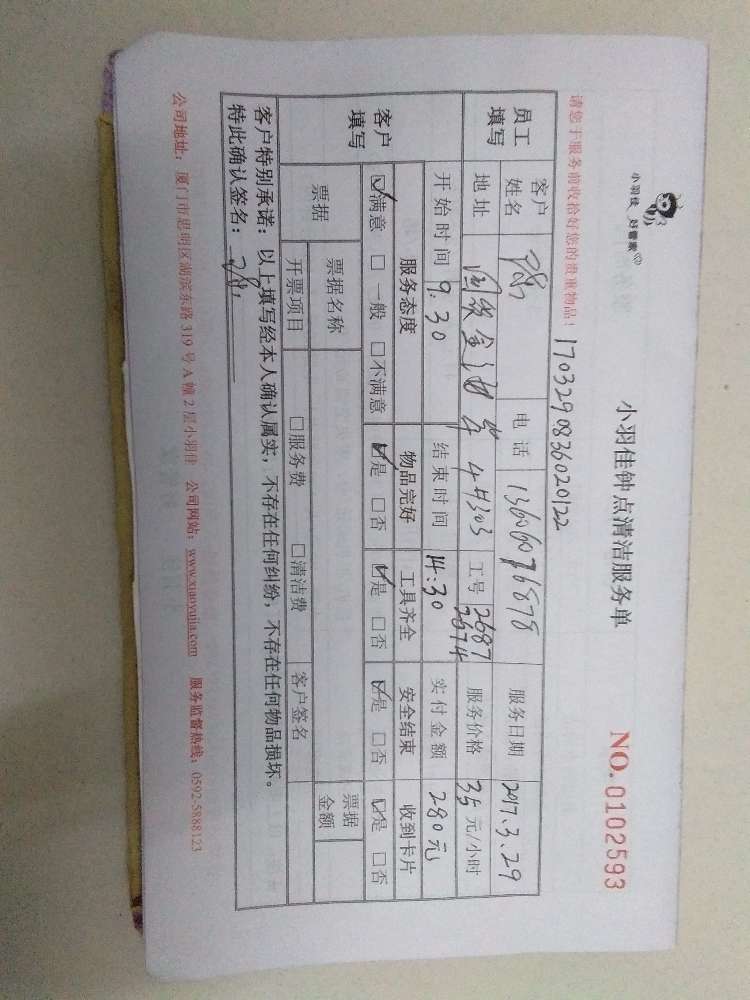 小羽佳 好管家
小羽佳钟点清洁服务单
NO. 0102593
请您于服务前收拾好您的贵重物品！
1703290836020122
员工填写
客户姓名 电话 13606076878 服务日期 2017.3.29
地址 国贸金海岸 4#303 工号 2687 2674 服务价格 35元/小时
开始时间 9:30 结束时间 14:30 实付金额 280元
客户填写
服务态度 物品完好 工具齐全 安全结束 收到卡片
☑满意 □一般 □不满意 ☑是 □否 ☑是 □否 ☑是 □否 ☑是 □否
票据 票据名称 票据金额
开票项目 □服务费 □清洁费 客户签名
客户特别承诺：以上填写经本人确认属实，不存在任何纠纷，不存在任何物品损坏。
特此确认签名：
公司地址：厦门市思明区湖滨东路 319 号 A 幢 2 层小羽佳 公司网站：www.xiaoyujia.com 服务监督热线：0592-5888123